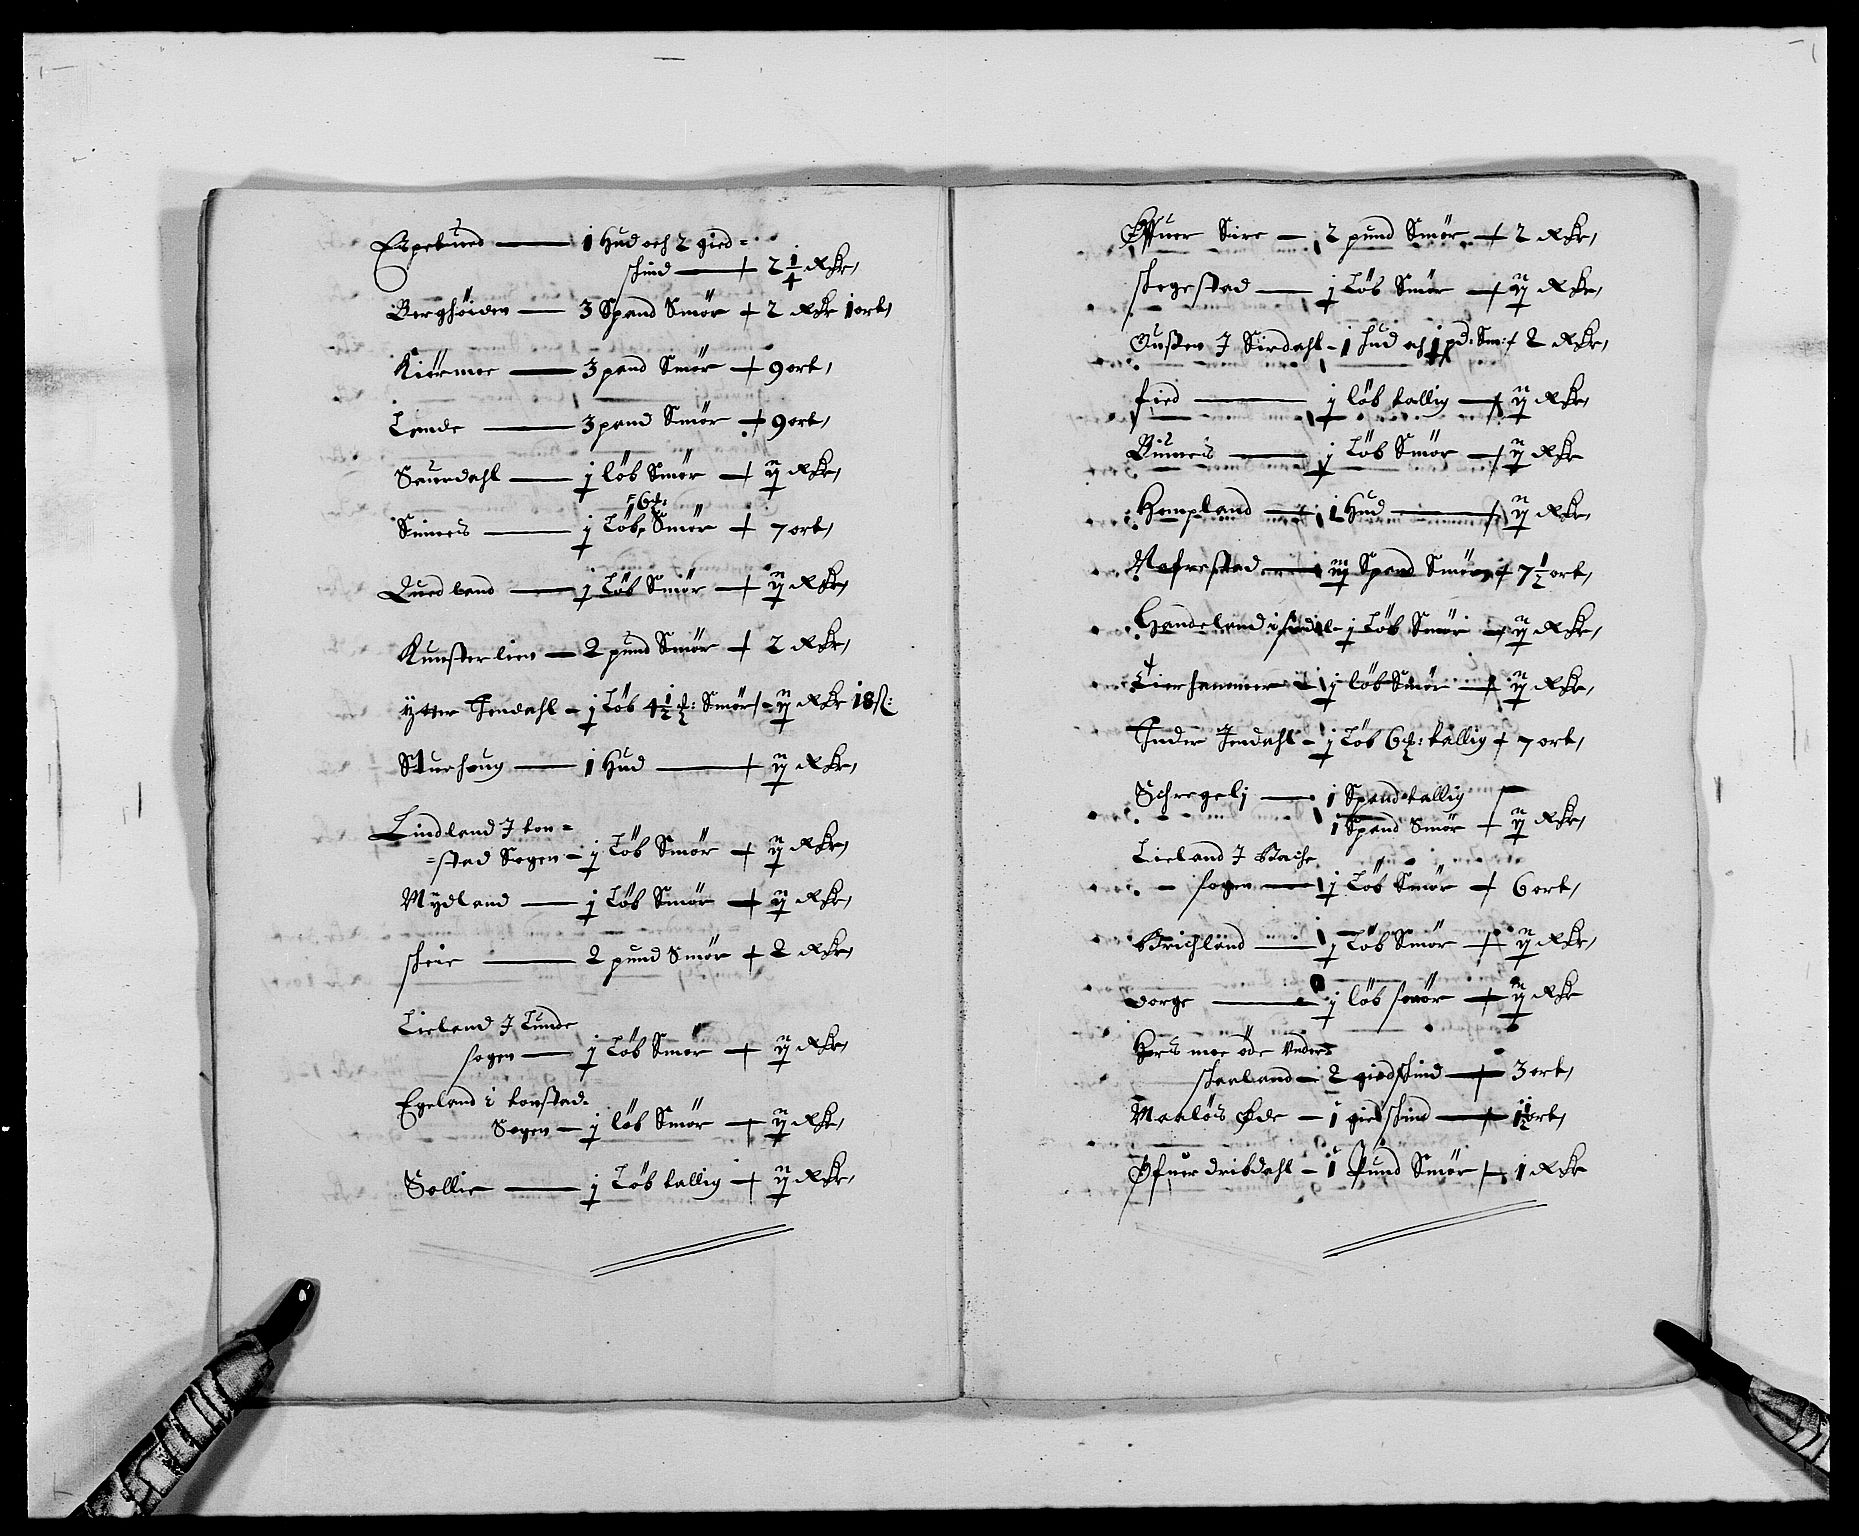 Espetued — 1 Hud och 2 gied=
schind — 2 1/4 Rdr,
Berghöiden — 3 Spand Smör 2 Rdr 1 ort,
Kiörmoe — 3 pund Smör 9 ort,
Lende — 3 pund Smör 9 ort,
Seuerdahl — j löb Smör ij Rdr,
Sinnes — j Löb, Smör 7 ort,
Quedland — j Löb Smör ij Rdr,
Kunsterlien — 2 pund Smör 2 Rdr,
ytter Jendahl – j Löb 4 1/2 Smör ij Rdr 18 s:
Sturhoug — 1 Hud — ij Rdr,
Lindland J ton=
=stad Sogen – j Löb Smör ij Rdr,
Mydland — j Löb Smör ij Rdr,
scheie — 2 pund Smör 2 Rdr,
Lieland J Lunde
sogen — j Löb Smör ij Rdr,
Egeland i tonstad=
Sogen – j löb Smör ij Rdr,
Sollie — j Löb tallig ij Rdr,
Øffuer Sire – 2 pund Smör 2 Rdr,
schegestad — j Löb Smör ij Rdr,
Ousten J Sirdahl – 1 hud och 1 pd: Sm: 2 Rdr,
fied — j löb tallig ij Rdr,
Rinnes — j Löb Smör ij Rdr
Hompland — 1 Hud — ij Rdr,
Nafrestad — iij Spand Smör 7 1/2 ort,
Handeland i – j Löb Smör ij Rdr,
Lierhammer – j löb Smör ij Rdr,
Inder Jendahl – j Löb 6 : tallig 7 ort,
Schregelj — 1 Spand tallig
1 Spand Smör ij Rdr,
Lieland J Bache
sogen — j Löb Smör 6 ort,
Brichland — j Löb Smör ij Rdr,
dorge — j löb smör ij Rdr
moe öde Vnder
scheeland – 2 giedschind 3 ort,
Manlös Øde – 1 giedschind 1 1/2 ort,
Øfuer dribdahl – 1 Pund Smör 1 Rdr